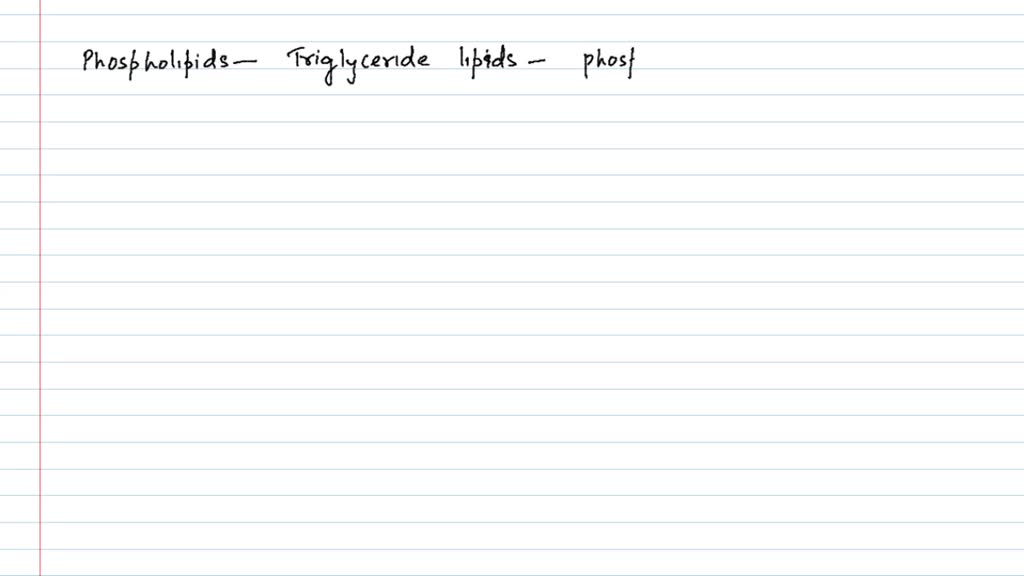 Phospholipids — Triglyceride lipids — phosp